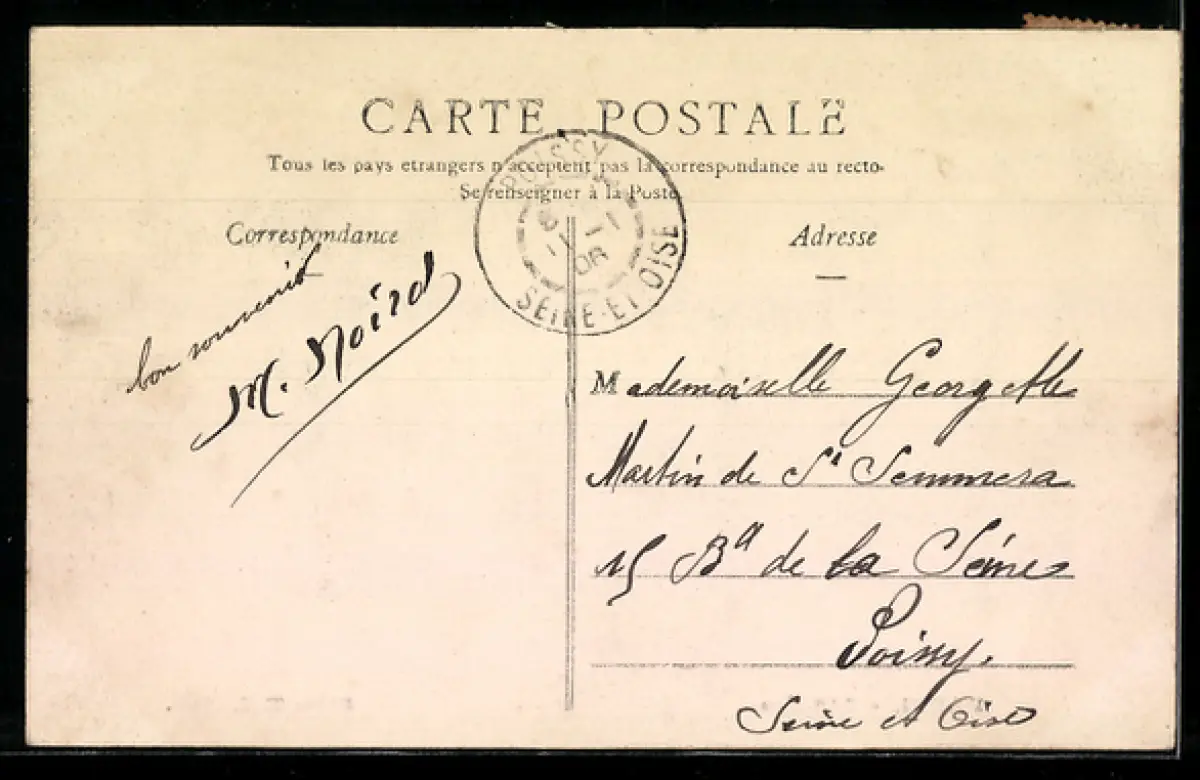 CARTE POSTALE
Tous les pays etrangers n'acceptent pas la correspondance au recto.
Se renseigner à la Poste
POISSY
1-1
06
SEINE-ET-OISE
Correspondance
Adresse
bon souvenir
M. Noird
Mademoiselle Georgette
Martin de St
15 Bd de la Seine
Poissy.
Seine et Oise